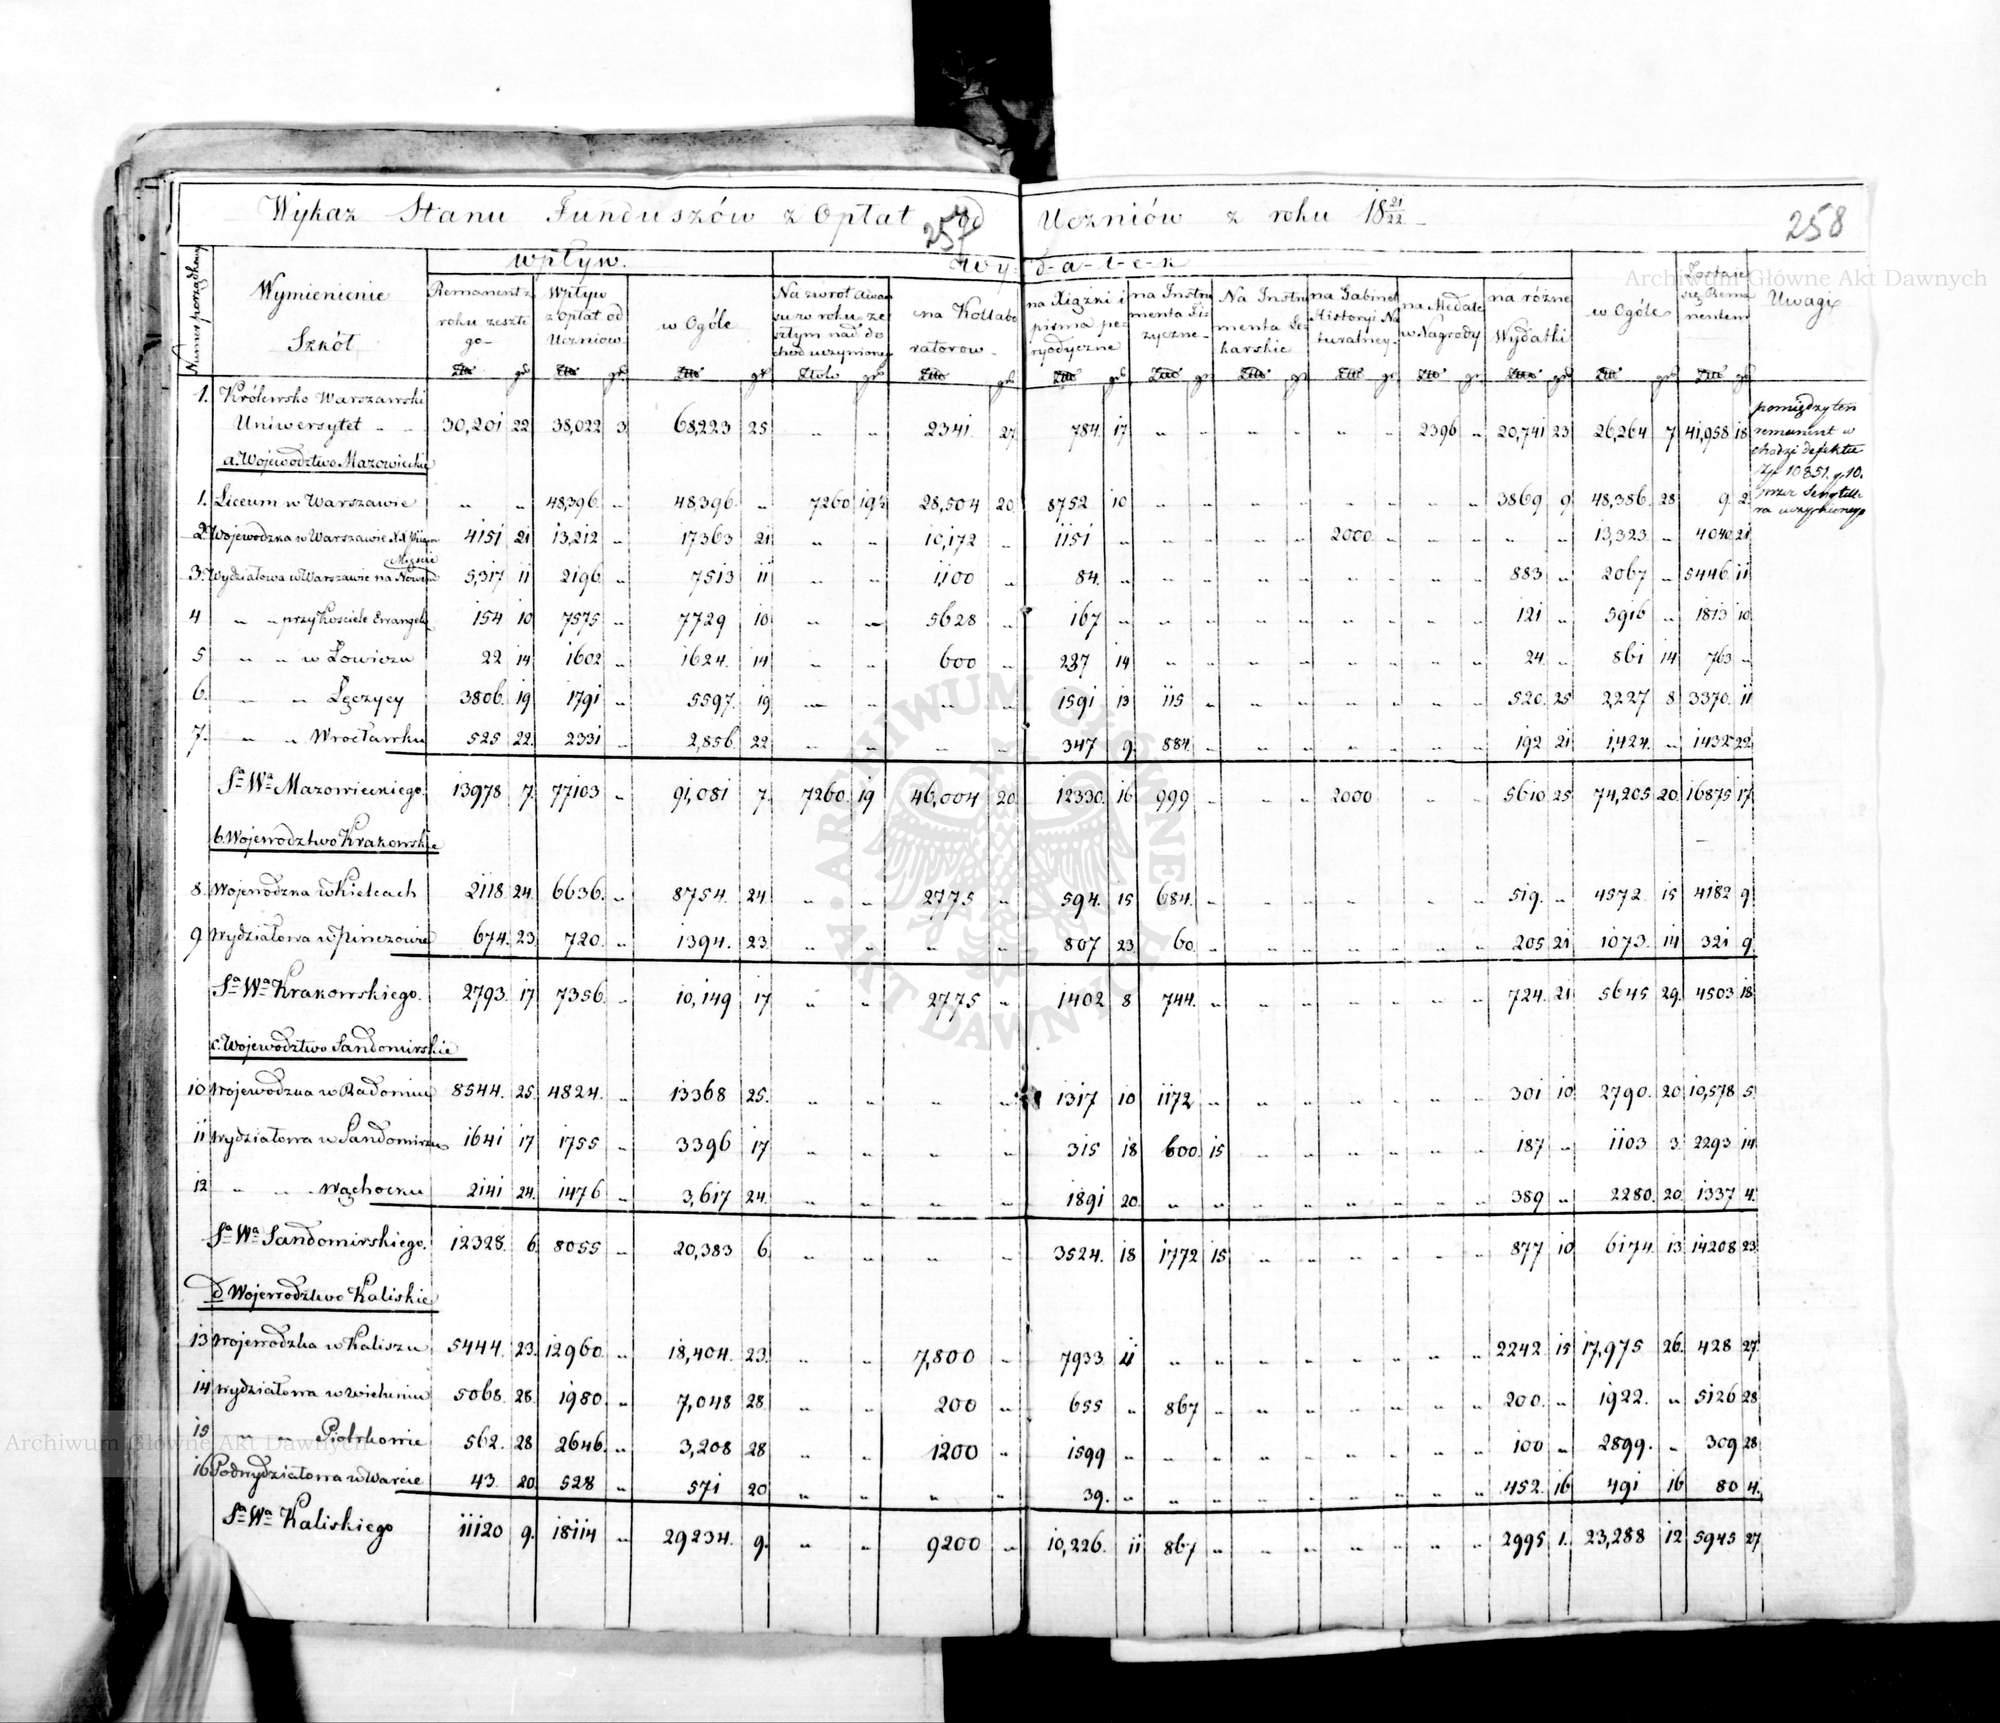 Wykaz Stanu Funduszów z Opłat od Uczniów z roku 18 21/22
257
258
Numer porządkowy
Wymienienie Szkół
Wpływ.
Wy- d-a-t-e-k
Remanent z roku zeszłego-
Wpływ z Opłat od Uczniów
w Ogóle
Na zwrot Awansu w roku zeszłym nad dochód uczynionego
na Kollaboratorow
na Xiążki i pisma peryodyczne
na Instrumenta Fizyczne
Na Instrumenta Lekarskie
na Gabinet Historyi Naturalney
na Medale w Nagrody
na różne Wydatki
w Ogóle
Zostaie się Remanentem
Uwagi
1. Królewsko Warszawski
Uniwersytet „ „ 30,201 22 38,022 3 68,223 25 „ „ 2341 27 784 17 „ „ „ „ „ „ 2396 „ 20,741 23 26,264 7 41,958 18
pomiędzy ten
remanent w
chodzi defektu
Złp 10851. g. 10.
przez
ra uczynionego
a. Województwo Mazowieckie
1. Liceum w Warszawie „ „ 48,396 „ 48,396 „ 7260 19 28,504 20 8752 10 „ „ „ „ „ „ „ „ 3869 9 48,386 28 9 2
2. Wojewódzka w Warszawie 4151 21 13,212 „ 17363 21 „ „ 10,172 „ 1151 „ „ „ „ „ 2000 „ „ „ „ „ 13,323 „ 4040 21
Mieście
3. Wydziałowa w Warszawie na Nowem 5,317 11 2196 „ 7513 11 „ „ 1,100 „ 84. „ „ „ „ „ „ „ „ „ 883 „ 2067 „ 5446 11
4 „ „ przy Kościele Ewangel. 154 10 7575 „ 7729 10 „ „ 5628 „ 167 „ „ „ „ „ „ „ „ „ 121 „ 5916 „ 1813 10
5 „ „ w Łowiczu 22 14 1602 „ 1624. 14 „ „ 600 „ 237 14 „ „ „ „ „ „ „ „ 24 „ 861 14 763 „
6. „ „ Łęczycy 3806. 19 1791 „ 5597. 19 „ „ „ „ 1591 13 115 „ „ „ „ „ „ „ 520. 25 2,227 8 3370. 11
7. „ „ Wrocławku 525 22. 2331 „ 2,856 22 „ „ „ „ 347 9. 884. „ „ „ „ „ „ „ 192 21 1,424. „ 1432 22
Sa Wa Mazowieckiego. 13978 7. 77103 „ 91,081 7. 7260. 19 46,004 20 12330. 16 999 „ „ „ 2000 „ „ 5610 25 74,205 20 16875 17
b. Województwo Krakowskie
8. Wojewódzka w Kielcach 2118 24. 6636. „ 8754. 24. „ „ 2775 „ 594. 15 684. „ „ „ „ „ „ „ 519. „ 4572. 15 4182 9
9 Wydziałowa w Pinczowie 674. 23 720. „ 1394. 23. „ „ „ „ 807 23 60 „ „ „ „ „ „ „ 205 21 1073. 14 321 9
Sa Wa Krakowskiego. 2793. 17 7356. „ 10,149 17 „ „ 2775 „ 1402 8 744. „ „ „ „ „ „ „ 724. 21 5645 29. 4503 18
c. Województwo Sandomirskie
10 Wojewódzka w Radomiu 8544. 25. 4824. „ 13368 25. „ „ „ „ 1317 10 1172 „ „ „ „ „ „ „ 301 10 2790. 20 10,578 5
11 Wydziałowa w Sandomirzu 1641 17 1755 „ 3396 17 „ „ „ „ 315 18 600 15 „ „ „ „ „ „ 187 „ 1103 3 2293 14
12 „ „ Wąchocku 2141 24. 1476 „ 3,617 24. „ „ „ „ 1891 20. „ „ „ „ „ „ „ „ 389 „ 2280. 20 1337 4.
Sa Wa Sandomirskiego. 12328. 6 8055 „ 20,383 6 „ „ „ „ 3524. 18 1772 15 „ „ „ „ „ „ 877 10 6174. 13 14208 23
d Województwo Kaliskie
13 Wojewódzka w Kaliszu 5444. 23. 12960. „ 18,404. 23 „ „ 7,800 „ 7933. 11 „ „ „ „ „ „ „ „ 2242 15 17,975 26. 428 27
14 Wydziałowa w Wieluniu 5068. 28. 1980. „ 7,048 28 „ „ 200 „ 655 „ 867 „ „ „ „ „ „ „ 200. „ 1922. „ 5126 28
15 „ „ Piotrkowie 562. 28 2646. „ 3,208 28 „ „ 1200 „ 1599 „ „ „ „ „ „ „ „ „ 100 „ 2899. „ 309 28
16 Podwydziałowa w Warcie 43 20. 528 „ 571 20 „ „ „ „ 39. „ „ „ „ „ „ „ „ „ 452. 16 491 16 80 4.
Sa Wa Kaliskiego 11120 9. 18114 „ 29234. 9. „ „ 9200 „ 10,226. 11 867 „ „ „ „ „ „ „ 2995 1. 23,288 12 5945 27
Archiwum Główne Akt Dawnych
Archiwum Główne Akt Dawnych
ARCHIWUM GŁÓWNE AKT DAWNYCH